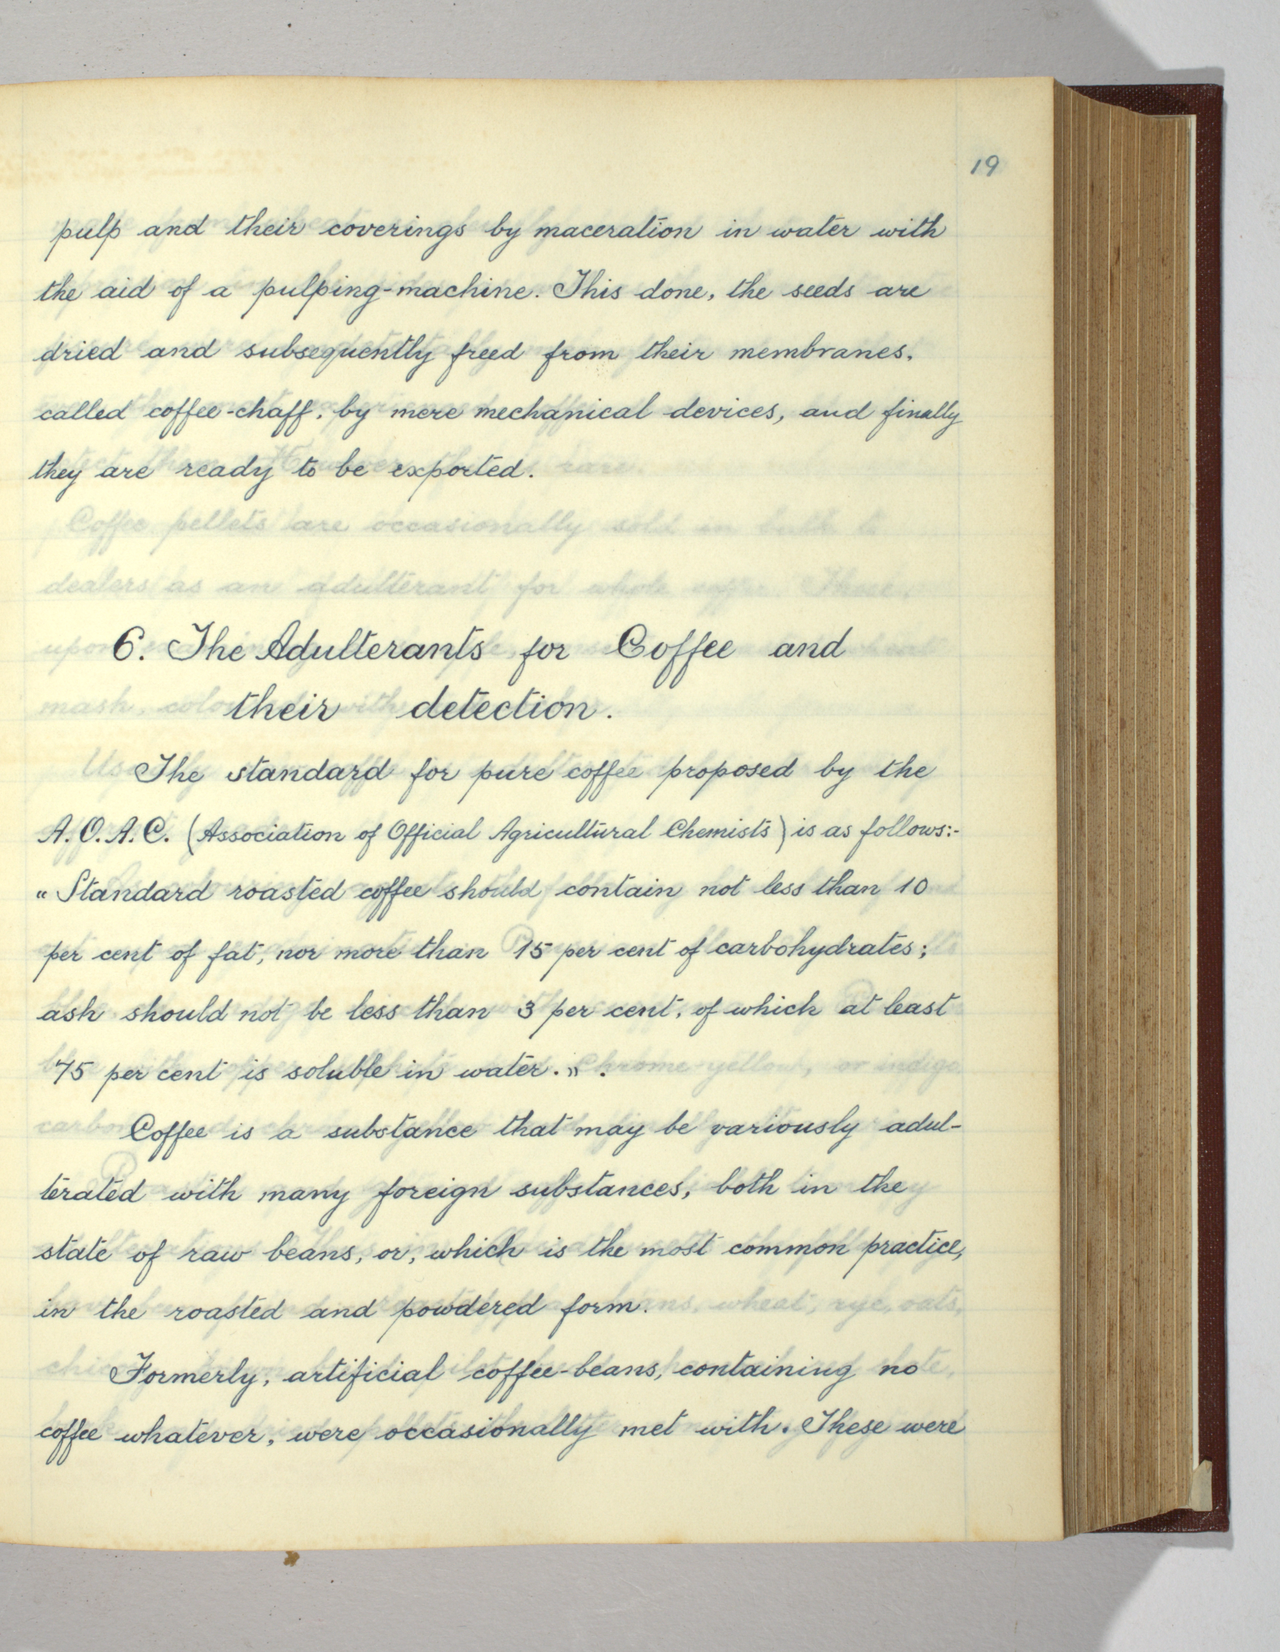 19
pulp and their coverings by maceration in water with
the aid of a pulping-machine. This done, the seeds are
dried and subsequently freed from their membranes,
called coffee-chaff, by mere mechanical devices, and finally
they are ready to be exported.
6. The Adulterants for Coffee and
their detection.
The standard for pure coffee proposed by the
A.O.A.C. (Association of Official Agricultural Chemists) is as follows:-
"Standard roasted coffee should contain not less than 10
per cent of fat, nor more than 15 per cent of carbohydrates;
ash should not be less than 3 per cent, of which at least
75 per cent is soluble in water.".
Coffee is a substance that may be variously adul-
terated with many foreign substances, both in the
state of raw beans, or, which is the most common practice,
in the roasted and powdered form.
Formerly, artificial coffee-beans, containing no
coffee whatever, were occasionally met with. These were